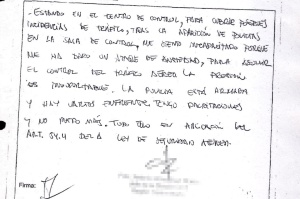 - ESTANDO EN EL CENTRO DE CONTROL, PARA CUBRIR POSIBLES
INCIDENCIAS DE TRÁFICO, TRAS LA APARICIÓN DE POLICIAS
EN LA SALA DE CONTROL, ME SIENTO INCAPACITADO PORQUE
ME HA DADO UN ATAQUE DE ANSIEDAD, PARA SEGUIR
EL CONTROL DEL TRÁFICO AÉREO. LA PRESIÓN
ES INSOPORTABLE. LA POLICIA ESTÁ ARMADA
Y HAY VARIOS ENFRENTE, TENGO PALPITACIONES
Y NO PUEDO MÁS. TODO ELLO EN APLICACIÓN DEL
ART. 34.4 DE LA LEY DE SEGURIDAD AÉREA.
Firma: